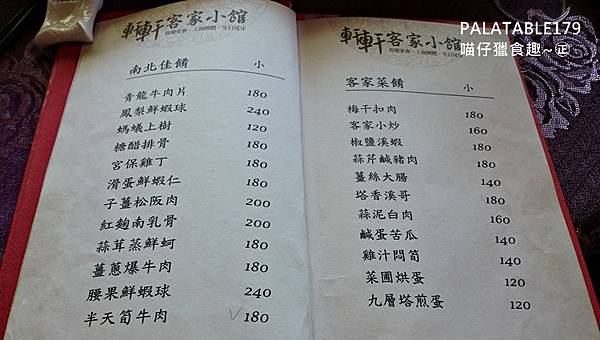 軒軒客家小館
南北佳餚 小
青龍牛肉片 180
鳳梨鮮蝦球 240
螞蟻上樹 120
糖醋排骨 180
宮保雞丁 180
滑蛋鮮蝦仁 180
子薑松阪肉 200
紅麴南乳骨 200
蒜茸蒸鮮蚵 180
薑蔥爆牛肉 180
腰果鮮蝦球 240
半天筍牛肉 180
PALATABLE179
喵仔獵食趣~㊣
軒軒客家小館
客家菜餚 小
梅干扣肉 180
客家小炒 160
椒鹽溪蝦 180
蒜芹鹹豬肉 180
薑絲大腸 140
塔香溪哥 180
蒜泥白肉 160
鹹蛋苦瓜 140
雞汁悶筍 140
菜圃烘蛋 120
九層塔煎蛋 120